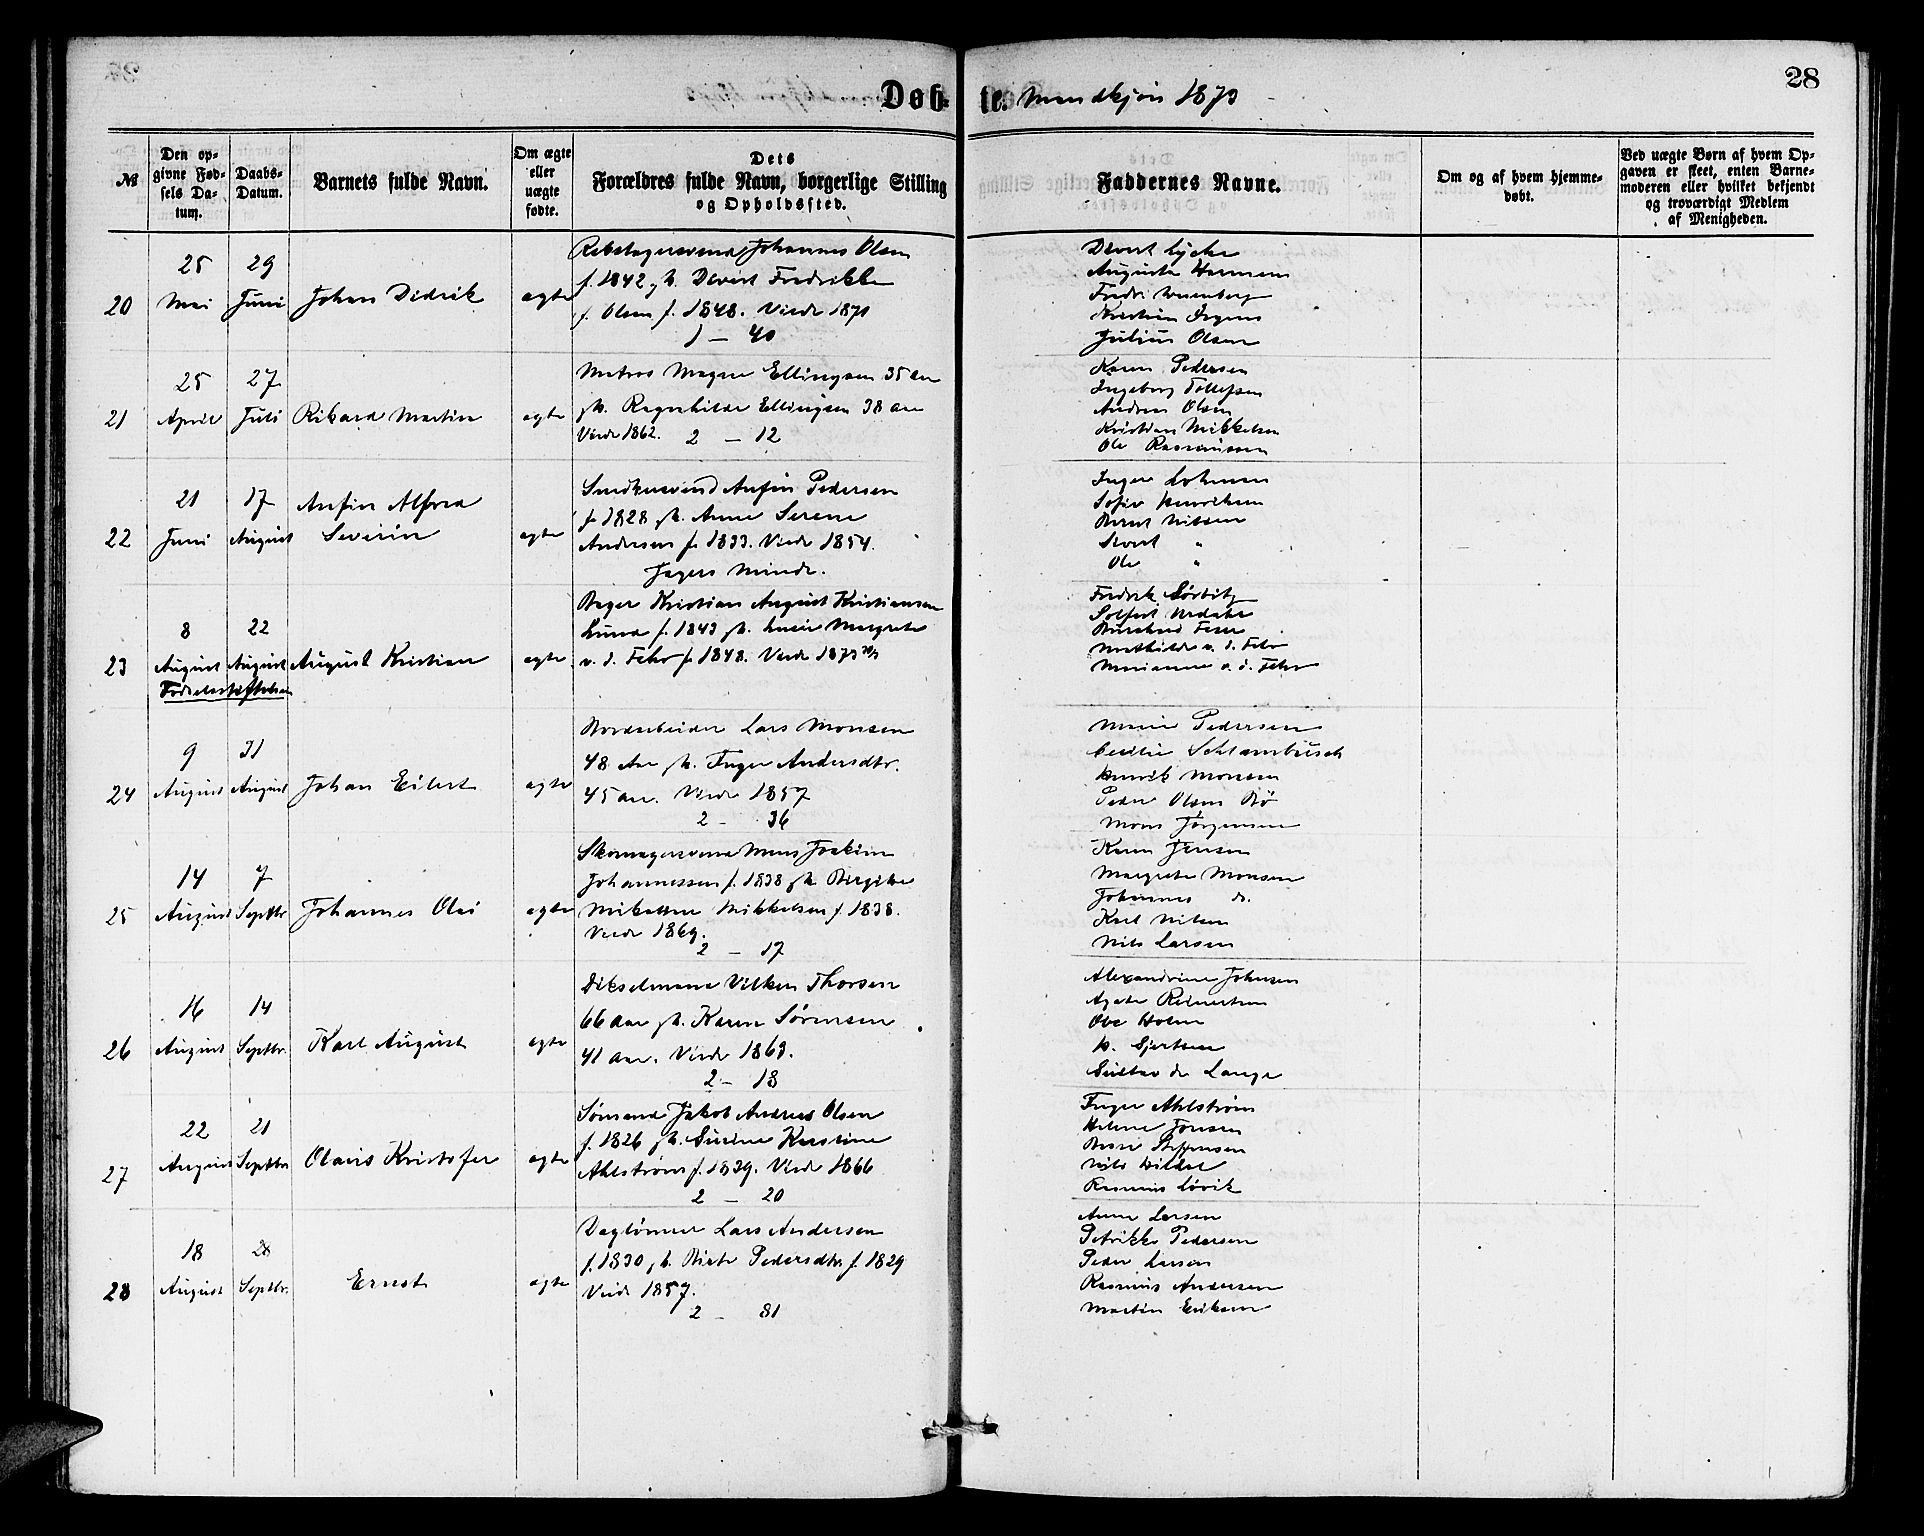 Døb-te. Mandkjøn 1873
28
№
Den op-
givne Fød-
sels Da-
tum.
Daabs-
Datum.
Barnets fulde Navn.
Om ægte
eller
uægte
fødte.
Dets
Forældres fulde Navn, borgerlige Stilling
og Opholdssted.
Faddernes Navne.
Om og af hvem hjemme-
døbt.
Ved uægte Børn af hvem Op-
gaven er skeet, enten Barne-
moderen eller hvilket bekjendt
og troværdigt Medlem
af Menigheden.
20
25
Mai
29
Juni
Johan Didrik
ægte
Johannes Olsen
f. 1842, h. Divert Fredrikke
f. Olsen f. 1848. Viede 1871
1 - 40
Divert Lycke
Augusta Hermansen
Julius Olsen
21
25
April
27
Juli
Rikard Martin
ægte
Matros Magne Ellingsen 35 Aar
h. Ragnhilde Ellingsen 38 Aar
Viede 1862. 2 - 12
Karen Pedersen
Ingeborg Tollefsen
Andrea Olsen
Kristian Mikkelsen
Ole Rasmussen
22
21
Juni
17
August
Anfin Alfred
Severin
ægte
Snedkersvend Anfin Pedersen
f. 1828, h. Anne Serene
Andersen f. 1833. Viede 1854.
Jægers Minde.
Sofie Henriksen
Bernt Nilsen
Sivert "
Ole "
23
8
August
22
August
Fødselsstiftelsen
August Kristian
ægte
Bager Kristian August Kristiansen
Lund f. 1843, h. Lucie Margrete
v. d. Fehr f. 1848. Viede 1873
Fredrik
Mathilde v. d. Fehr
Marianne v. d. Fehr
24
9
August
31
August
Johan Eilert
ægte
Lars Monsen
48 Aar, h. Inger Andersdtr.
45 Aar. Viede 1857
2 - 36
Marie Pedersen
Cecilie Schlambusch
Henrik Monsen
Peder Olsen Bø
Mons Jørgensen
25
14
August
7
Septbr
Johannes Olai
ægte
Skomagersvend Mons Joakim
Johannessen f. 1838, h. Birgitte
Mikkelsen f. 1838.
Viede 1869.
2 - 17
Karen Jensen
Margrete Monsen
Johannes do.
Karl Nilsen
Nils Larsen
26
16
August
14
Septbr.
Karl August
ægte
Dikselmand Vilken Thorsen
66 Aar, h. Karen Sørensen
41 Aar. Viede 1863.
2 - 18
Alexandrine Johnsen
Agate Reinertsen
Ove Holm
Gustav de Lange
27
22
August
21
Septbr
Olaus Kristofer
ægte
Sømand Jakob Andreas Olsen
f. 1826, h. Kirstine
Ahlstrøm f. 1839. Viede 1866
2 - 20
Inger Ahlstrøm
Helene Jonsen
Steffensen
Nils Hildal
Rasmus Løvik
28
18
August
28
Septbr.
Ernst
ægte
Dagløner Lars Andersen
f. 1830, h. Birte Pedersdtr f. 1829
Viede 1857.
2 - 81
Anne Larsen
Petrikke Pedersen
Peder Larsen
Rasmus Andersen
Martin Eriksen